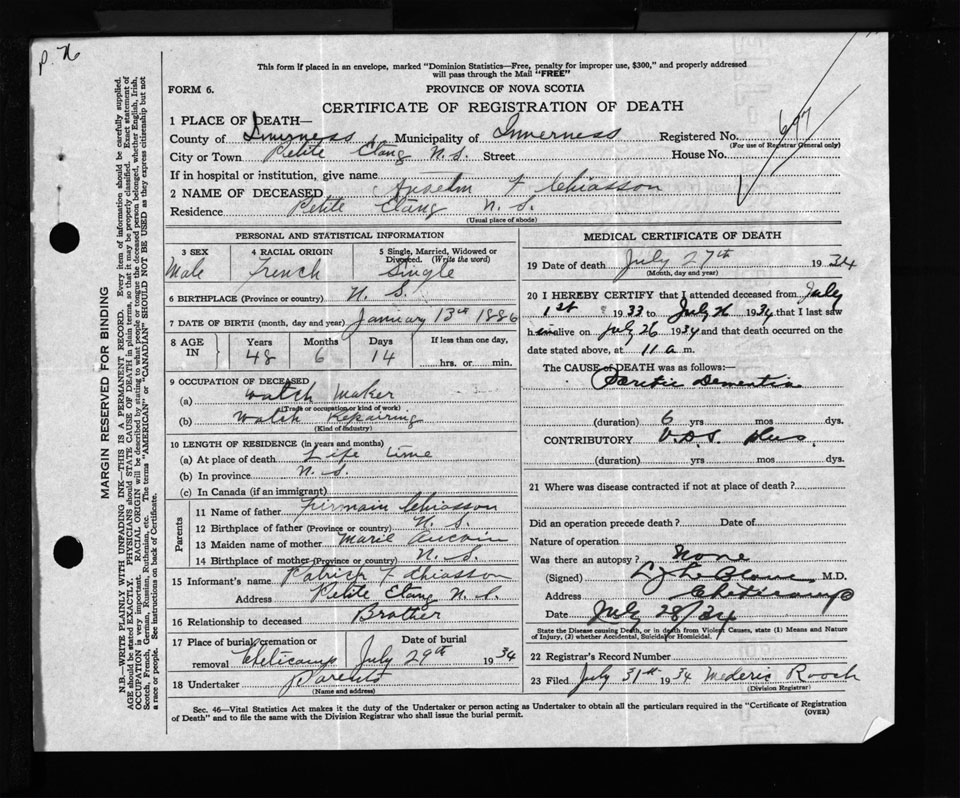 P. 76
This form if placed in an envelope, marked "Dominion Statistics—Free, penalty for improper use, $300," and properly addressed
will pass through the Mail "FREE"
FORM 6.
PROVINCE OF NOVA SCOTIA
CERTIFICATE OF REGISTRATION OF DEATH
1 PLACE OF DEATH—
County of Inverness Municipality of Inverness Registered No. 697
(For use of Registrar General only)
City or Town Petite Etang N.S. Street House No.
If in hospital or institution, give name
2 NAME OF DECEASED Anselm F Chiasson
Residence Petite Etang N. S.
(Usual place of abode)
PERSONAL AND STATISTICAL INFORMATION
3 SEX 4 RACIAL ORIGIN 5 Single, Married, Widowed or
Divorced. (Write the word)
Male French Single
6 BIRTHPLACE (Province or country) N. S.
7 DATE OF BIRTH (month, day and year) January 13th 1886
8 AGE IN Years Months Days If less than one day,
48 6 14 hrs. or min.
9 OCCUPATION OF DECEASED
(a) Watch Maker
(Trade or occupation or kind of work)
(b) Watch Repairing
(Kind of Industry)
10 LENGTH OF RESIDENCE (in years and months)
(a) At place of death Life time
(b) In province N. S.
(c) In Canada (if an immigrant)
Parents
11 Name of father Firmain Chiasson
12 Birthplace of father (Province or country) N. S.
13 Maiden name of mother Marie Aucoin
14 Birthplace of mother (Province or country) N. S.
15 Informant's name Patrick F Chiasson
Address Petite Etang N. S
16 Relationship to deceased Brother
17 Place of burial, cremation or Date of burial
removal Cheticamp July 29th 1934
18 Undertaker Parents
(Name and address)
MEDICAL CERTIFICATE OF DEATH
19 Date of death July 27th 1934
(Month, day and year)
20 I HEREBY CERTIFY that I attended deceased from July
1st 1933 to July 26 1934 that I last saw
him alive on July 26 1934 and that death occurred on the
date stated above, at 11 a m.
The CAUSE of DEATH was as follows:—
Dementia
(duration) 6 yrs mos dys.
CONTRIBUTORY
(duration) yrs mos dys.
21 Where was disease contracted if not at place of death?
Did an operation precede death? Date of
Nature of operation
Was there an autopsy? None
(Signed) M.D.
Address Cheticamp
Date July 28/34
State the Disease causing Death, or in death from Violent Causes, state (1) Means and Nature
of Injury, (2) whether Accidental, Suicidal or Homicidal.
22 Registrar's Record Number
23 Filed July 31st 1934 Mederic Roach
(Division Registrar)
Sec. 46—Vital Statistics Act makes it the duty of the Undertaker or person acting as Undertaker to obtain all the particulars required in the "Certificate of Registration
of Death" and to file the same with the Division Registrar who shall issue the burial permit.
(OVER)
MARGIN RESERVED FOR BINDING
N.B.—WRITE PLAINLY WITH UNFADING INK—THIS IS A PERMANENT RECORD. Every item of information should be carefully supplied.
AGE should be stated EXACTLY. PHYSICIANS should STATE CAUSE OF DEATH in plain terms, so that it may be properly classified. Exact statement of
OCCUPATION is very important. RACIAL ORIGIN will be described by stating to what people or tongue the deceased person belonged, whether English, Irish,
Scotch, French, German, Russian, Ruthenian, etc. The terms "AMERICAN" or "CANADIAN" SHOULD NOT BE USED as they express citizenship but not
a race or people. See instructions on back of Certificate.